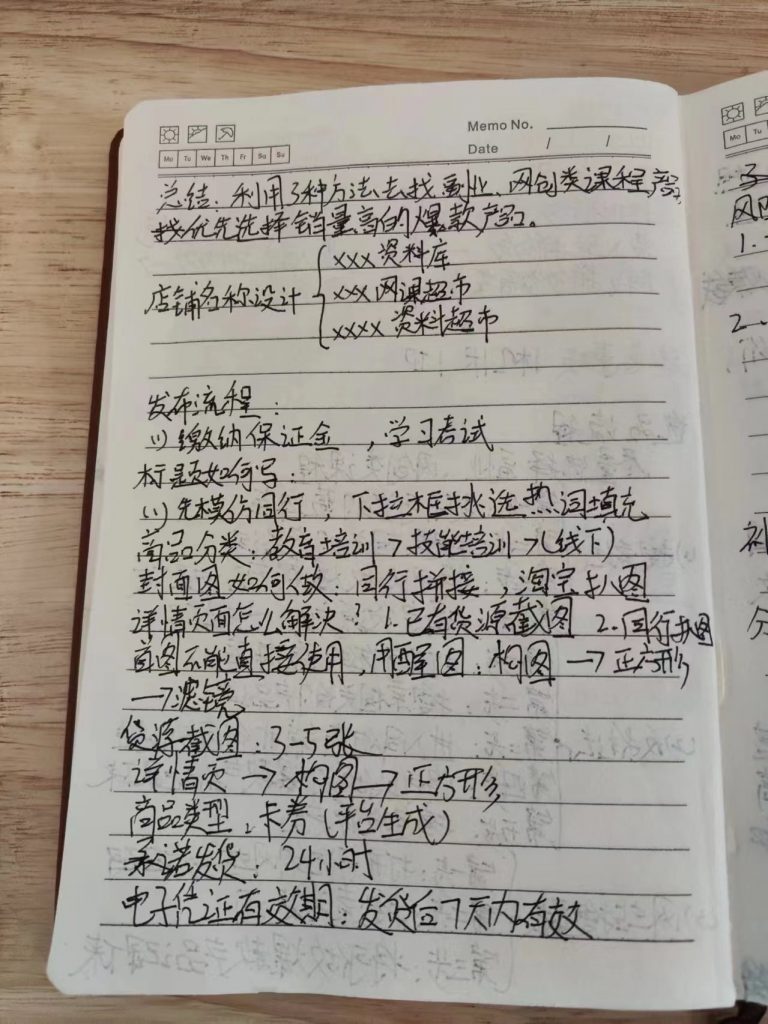 Memo No.
Date / /
Mo Tu We Th Fr Sa Su
总结：利用3种方法去找副业、网创类课程产品
找优先选择销量高的爆款产品。
店铺名称设计
xxx资料库
xxx网课超市
xxxx资料超市
发布流程：
(1)缴纳保证金，学习考试
标题如何写：
(1)先模仿同行，下拉框挑选热词填充
商品分类：教育培训>技能培训>(线下)
封面图如何做：同行拼接，淘宝扒图
详情页面怎么解决？1.已有货源截图 2.同行扒图
首图不能直接使用，用醒图：构图→正方形
→滤镜
货源截图：3-5张
详情页→构图→正方形
商品类型：卡券(平台生成)
承诺发货：24小时
电子凭证有效期：发货后7天内有效
Mo Tu
1.
2.